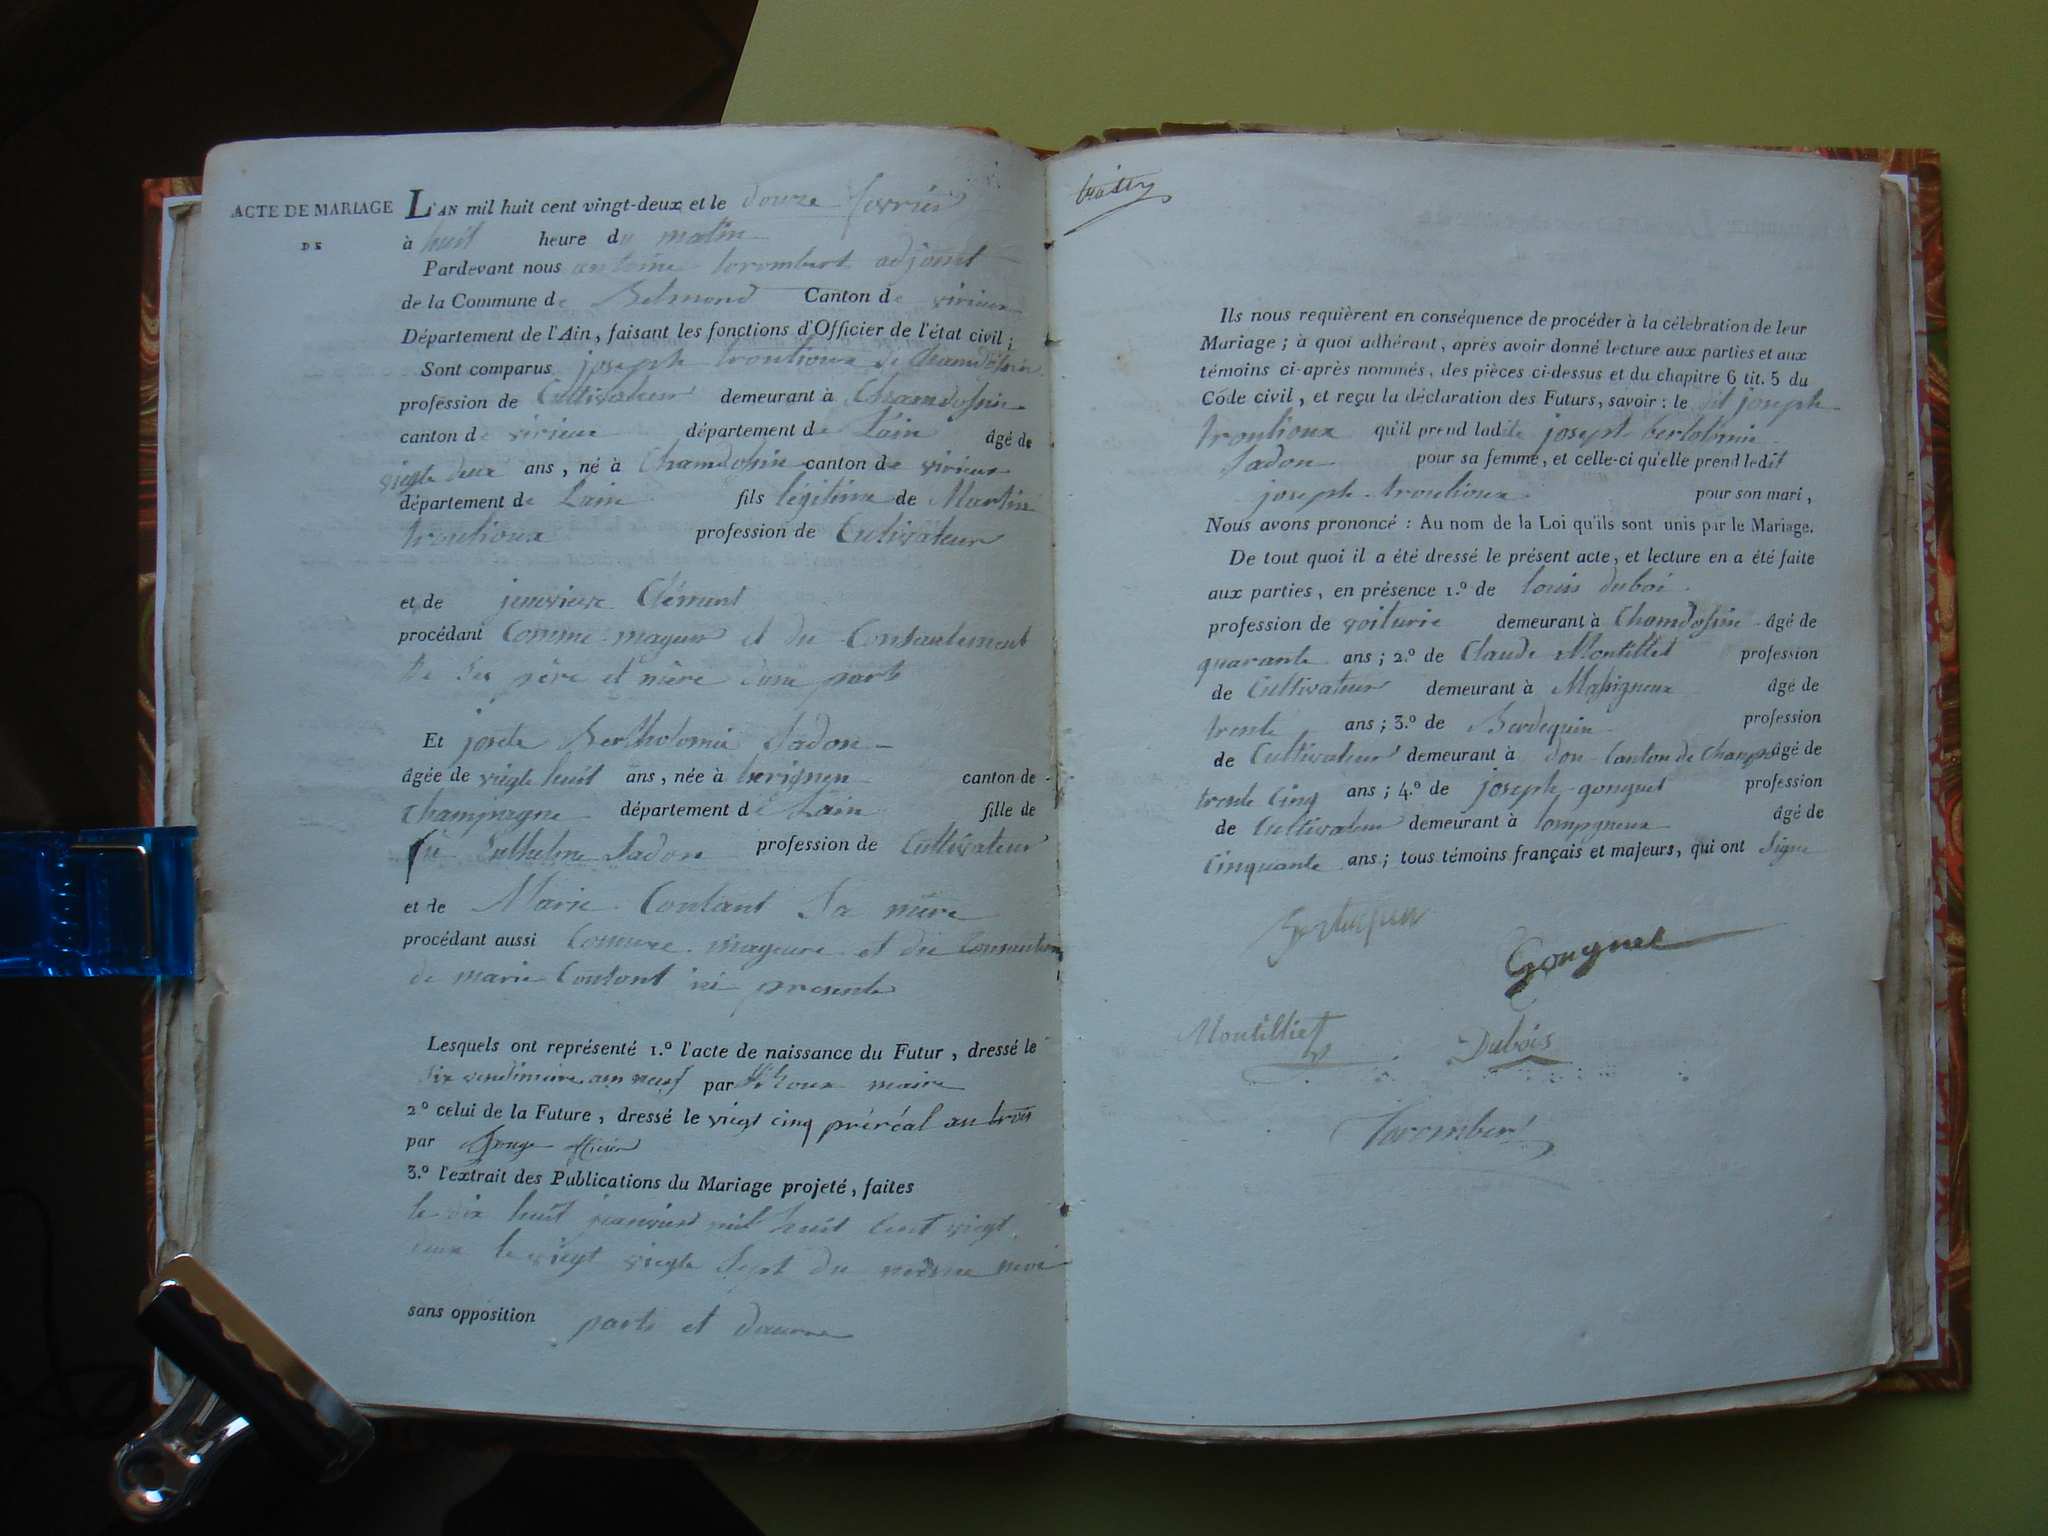 ACTE DE MARIAGE
DE
L'AN mil huit cent vingt-deux et le douze fevrier
à huit heure du matin
Pardevant nous antoine torombert adjoint
de la Commune de Belmond Canton de virieux
Département de l'Ain, faisant les fonctions d'Officier de l'état civil;
Sont comparus joseph troulioux de Chamdossin
profession de Cultivateur demeurant à Chamdossin
canton de virieux département de Lain âgé de
vingte deux ans, né à Chamdossin canton de virieux
département de Lain fils légitime de Martin
troulioux profession de Cultivateur
et de jenevieve Clément
procédant Comme mageur et du Consantement
de ses père et mère dune parts
Et josete Bertholomie Sadon
âgée de vingte huit ans, née à canton de
Champagne département de Lain fille de
fu Sadon profession de Cultivateur
et de Marie Coutant Sa mère
procédant aussi Comme mageure et du
de marie Coutant ici presente
Lesquels ont représenté 1.º l'acte de naissance du Futur, dressé le
six vendimiaire an neuf par maire
2º celui de la Future, dressé le vingt cinq préréal an trois
par officier
3.º l'extrait des Publications du Mariage projeté, faites
le dix huit janvier mil huit Cent vingt
deux le vingt vingte Sept du meme moi
sans opposition parts et daurre
Ils nous requièrent en conséquence de procéder à la célébration de leur
Mariage; à quoi adhérant, après avoir donné lecture aux parties et aux
témoins ci-après nommés, des pièces ci-dessus et du chapitre 6 tit. 5 du
Code civil, et reçu la déclaration des Futurs, savoir: le dit joseph
troulioux qu'il prend ladite joseph bertolomie
Sadon pour sa femme, et celle-ci qu'elle prend ledit
joseph troulioux pour son mari,
Nous avons prononcé: Au nom de la Loi qu'ils sont unis par le Mariage.
De tout quoi il a été dressé le présent acte, et lecture en a été faite
aux parties, en présence 1.º de louis duboi
profession de voiturie demeurant à Chamdossin âgé de
quarante ans; 2.º de Claude Montillet profession
de Cultivateur demeurant à Massigneux âgé de
trente ans; 3.º de Berdequin profession
de Cultivateur demeurant à don Canton de Champ âgé de
trente Cinq ans; 4.º de joseph gonguet profession
de Cultivateur demeurant à lompgneux âgé de
Cinquante ans; tous témoins français et majeurs, qui ont Signe
Gougnet
Montilliet
Dubois
Torombert